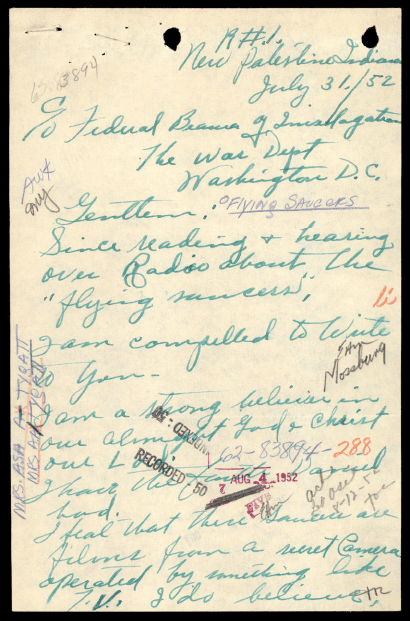 R#1.
New Palestine Indiana
July 31./52
62-83894
To Federal Beaura of Investagation
The War Dept
Washington D.C.
Gentlem.
"FLYING SAUCERS
Since reading + hearing
over Radio about the
"flying saucers",
I am compelled to Write
to You-
Mossburg
I am a strong believer in
our almighty God & Christ
our Lord
62-83894-288
RECORDED-50
INDEXED-50
7 AUG 4 1952
MRS. ASA
I feal that these saucers are
films from a secret Camera
operated by something like
T.V. I do believe,